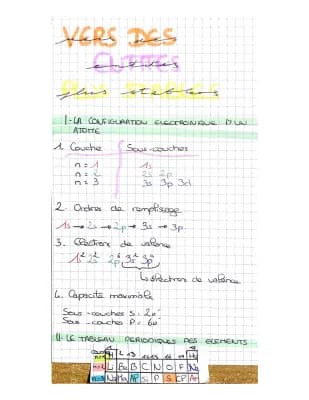 VERS DES
ENTITES
plus stables
I-LA CONFIGURATION ELECTRONIQUE D'UN
ATOME
1. Couche Sous-couches
n = 1 1s
n = 2 2s 2p
n = 3 3s 3p 3d
2. Ordres de remplissage
1s → 2s → 2p → 3s → 3p
3. Électrons de valence
1s² 2s² 2p⁶ 3s² 3p²
↳ électrons de valence
4. Capacité maximale
Sous-couches s = 2e⁻
Sous-couches P = 6e⁻
II-LE TABLEAU PERIODIQUES DES ELEMENTS
H He
n=2 Li Be B C N O F Ne
n=3 Na Mg Al Si P S Cl Ar